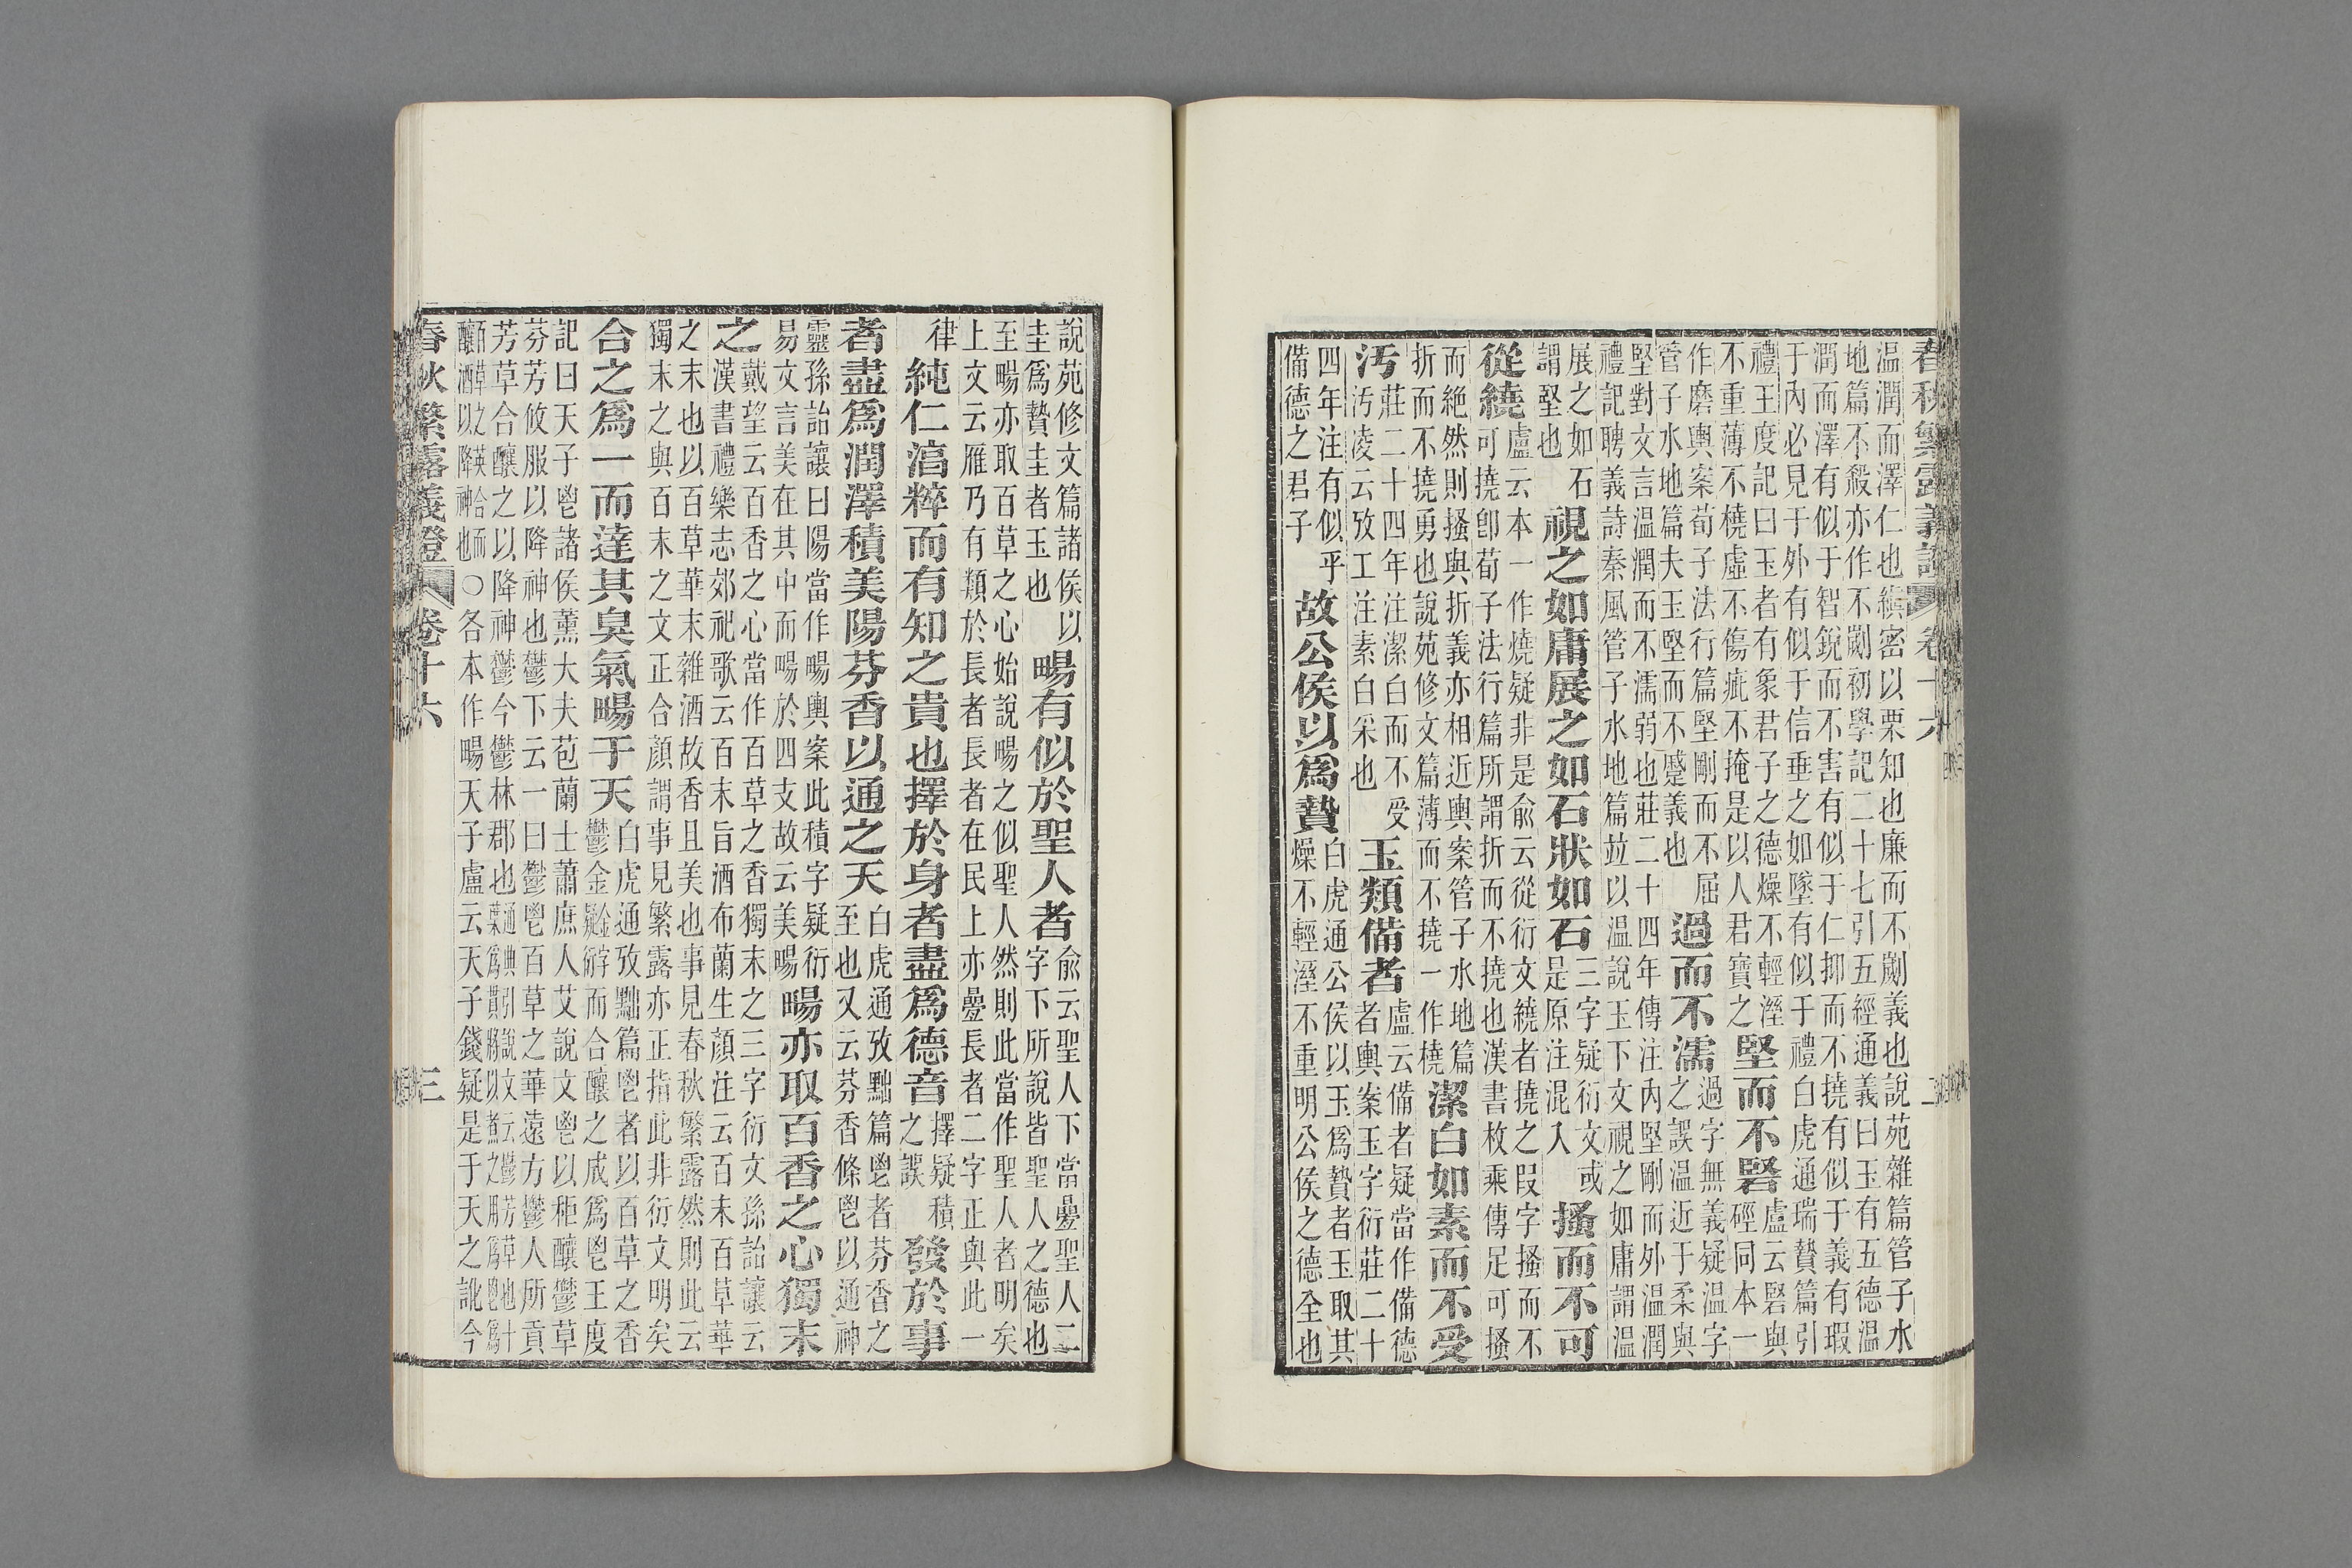 春秋繁露義證 卷十六 二
温潤而澤仁也縝密以栗知也廉而不劌義也說苑雜篇管子水
地篇不殺亦作不劌初學記二十七引五經通義曰玉有五德温
潤而澤有似于智銳而不害有似于仁抑而不撓有似于義有瑕
于內必見于外有似于信垂之如墜有似于禮白虎通瑞贄篇引
禮王度記曰玉者有象君子之德燥不輕溼
不重薄不橈虛不傷疵不掩是以人君寶之
堅而不硻
盧云硻與
硜同本一
作磨輿案荀子法行篇堅剛而不屈
管子水地篇夫玉堅而不蹙義也
過而不濡
過字無義疑温字
之誤温近于柔與
堅對文言温潤而不濡弱也莊二十四年傳注內堅剛而外温潤
禮記聘義詩秦風管子水地篇竝以温說玉下文視之如庸謂温
展之如石
謂堅也
視之如庸展之如石狀如石
三字疑衍文或
是原注混入
搔而不可
從繞
盧云本一作燒疑非是俞云從衍文繞者撓之叚字搔而不
可撓卽荀子法行篇所謂折而不撓也漢書枚乘傳足可搔
而絶然則搔與折義亦相近輿案管子水地篇
折而不撓勇也說苑修文篇薄而不撓一作橈
潔白如素而不受
汚
莊二十四年注潔白而不受
汚凌云攷工注素白采也
玉類備者
盧云備者疑當作備德
者輿案玉字衍莊二十
四年注有似乎
備德之君子
故公侯以爲贄
白虎通公侯以玉爲贄者玉取其
燥不輕溼不重明公侯之德全也
說苑修文篇諸侯以
圭爲贄圭者玉也
畼有似於聖人者
俞云聖人下當疊聖人二
字下所說皆聖人之德也
至畼亦取百草之心始說畼之似聖人然則此當作聖人者明矣
上文云雁乃有類於長者長者在民上亦疊長者二字正與此一
律
純仁湻粹而有知之貴也擇於身者盡爲德音
擇疑積
之誤
發於事
者盡爲潤澤積美陽芬香以通之天
白虎通攷黜篇鬯者芬香之
至也又云芬香條鬯以通神
靈孫詒讓曰陽當作畼輿案此積字疑衍
易文言美在其中而畼於四支故云美畼
畼亦取百香之心獨末
之
戴望云百香之心當作百草之香獨末之三字衍文孫詒讓云
漢書禮樂志郊祀歌云百末旨酒布蘭生顏注云百末百草華
之末也以百草華末雜酒故香且美也事見春秋繁露然則此云
獨末之與百末之文正合顏謂事見繁露亦正指此非衍文明矣
合之爲一而達其臭氣畼于天
白虎通攷黜篇鬯者以百草之香
鬱金金字疑衍而合釀之成爲鬯王度
記曰天子鬯諸侯薰大夫苞蘭士蕭庶人艾說文鬯以秬釀鬱草
芬芳攸服以降神也鬱下云一曰鬱鬯百草之華遠方鬱人所貢
芳草合釀之以降神鬱今鬱林郡也
通典引說文云鬱芳草也十
葉爲貫將以煮之用爲鬯爲
百草之英合而
釀酒以降神也
○各本作畼天子盧云天子錢疑是于天之訛今
春秋繁露義證 卷十六 三